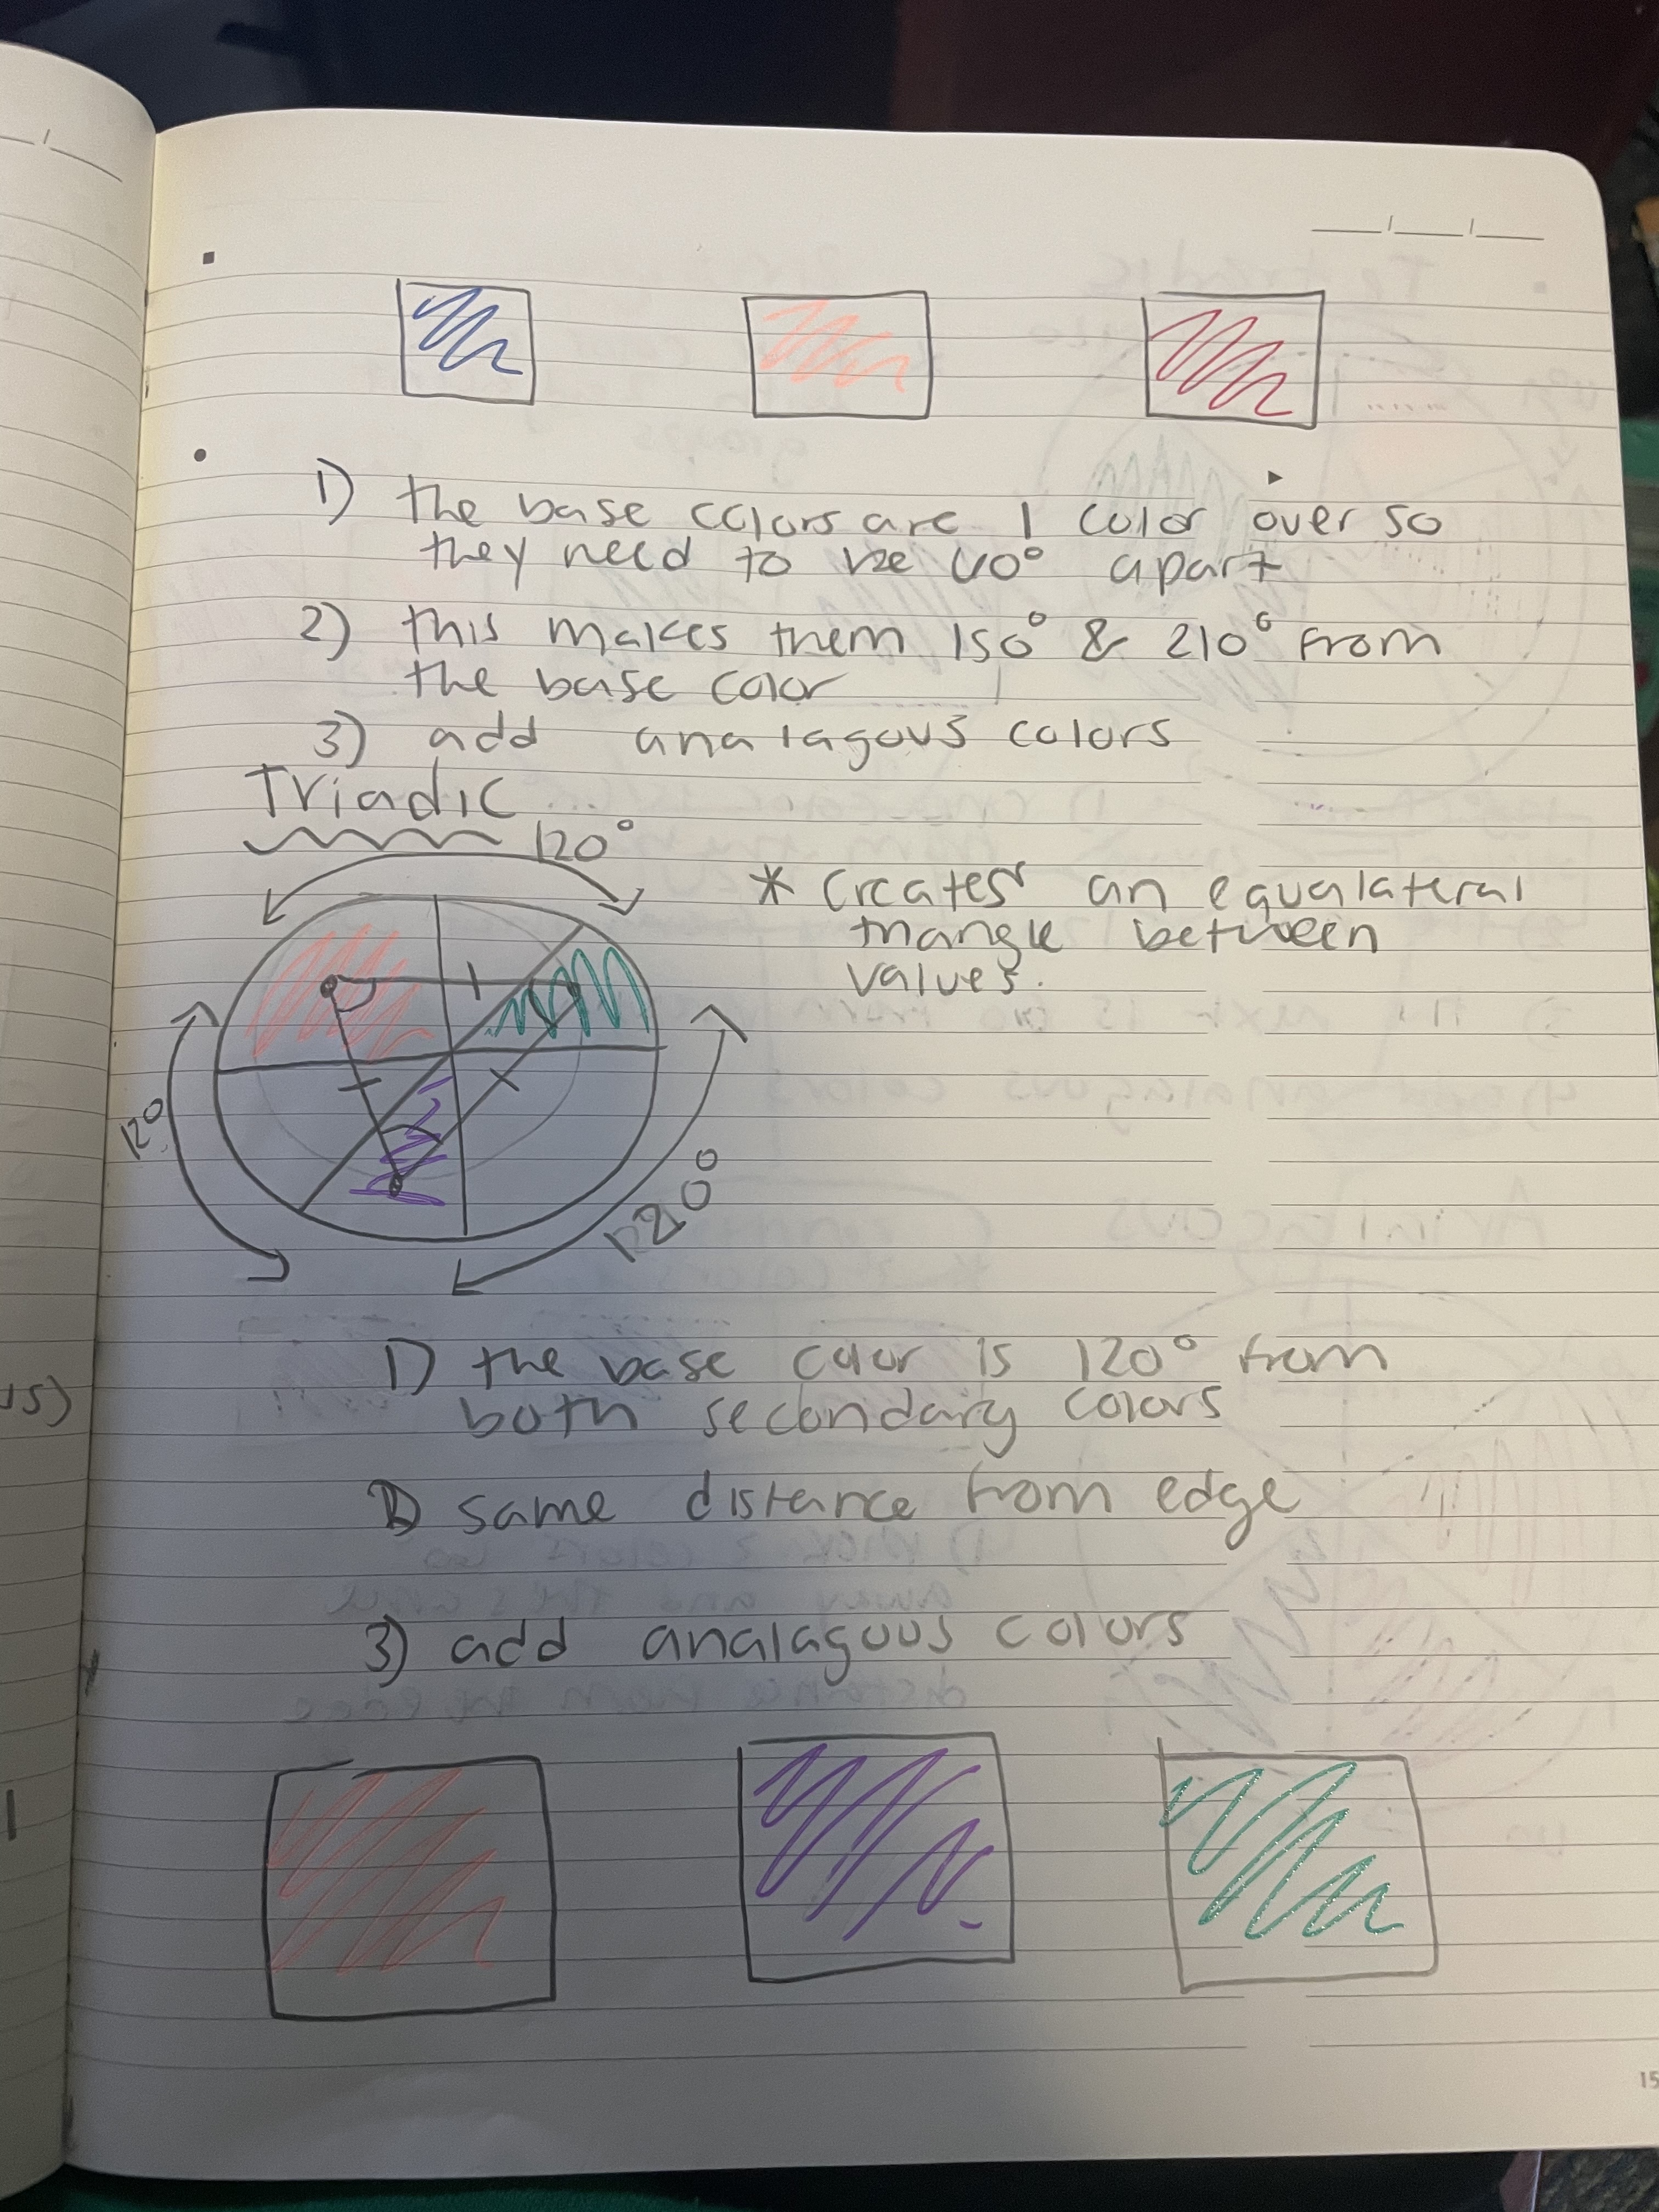 1) the base colors are 1 color over so
they need to be 60° apart
2) this makes them 150° & 210° from
the base color
3) add analagous colors
Triadic
120°
* Creates an equalateral
triangle between
values.
120
120°
1) the base color is 120° from
both secondary colors
2) same distance from edge
3) add analaguous colors
15